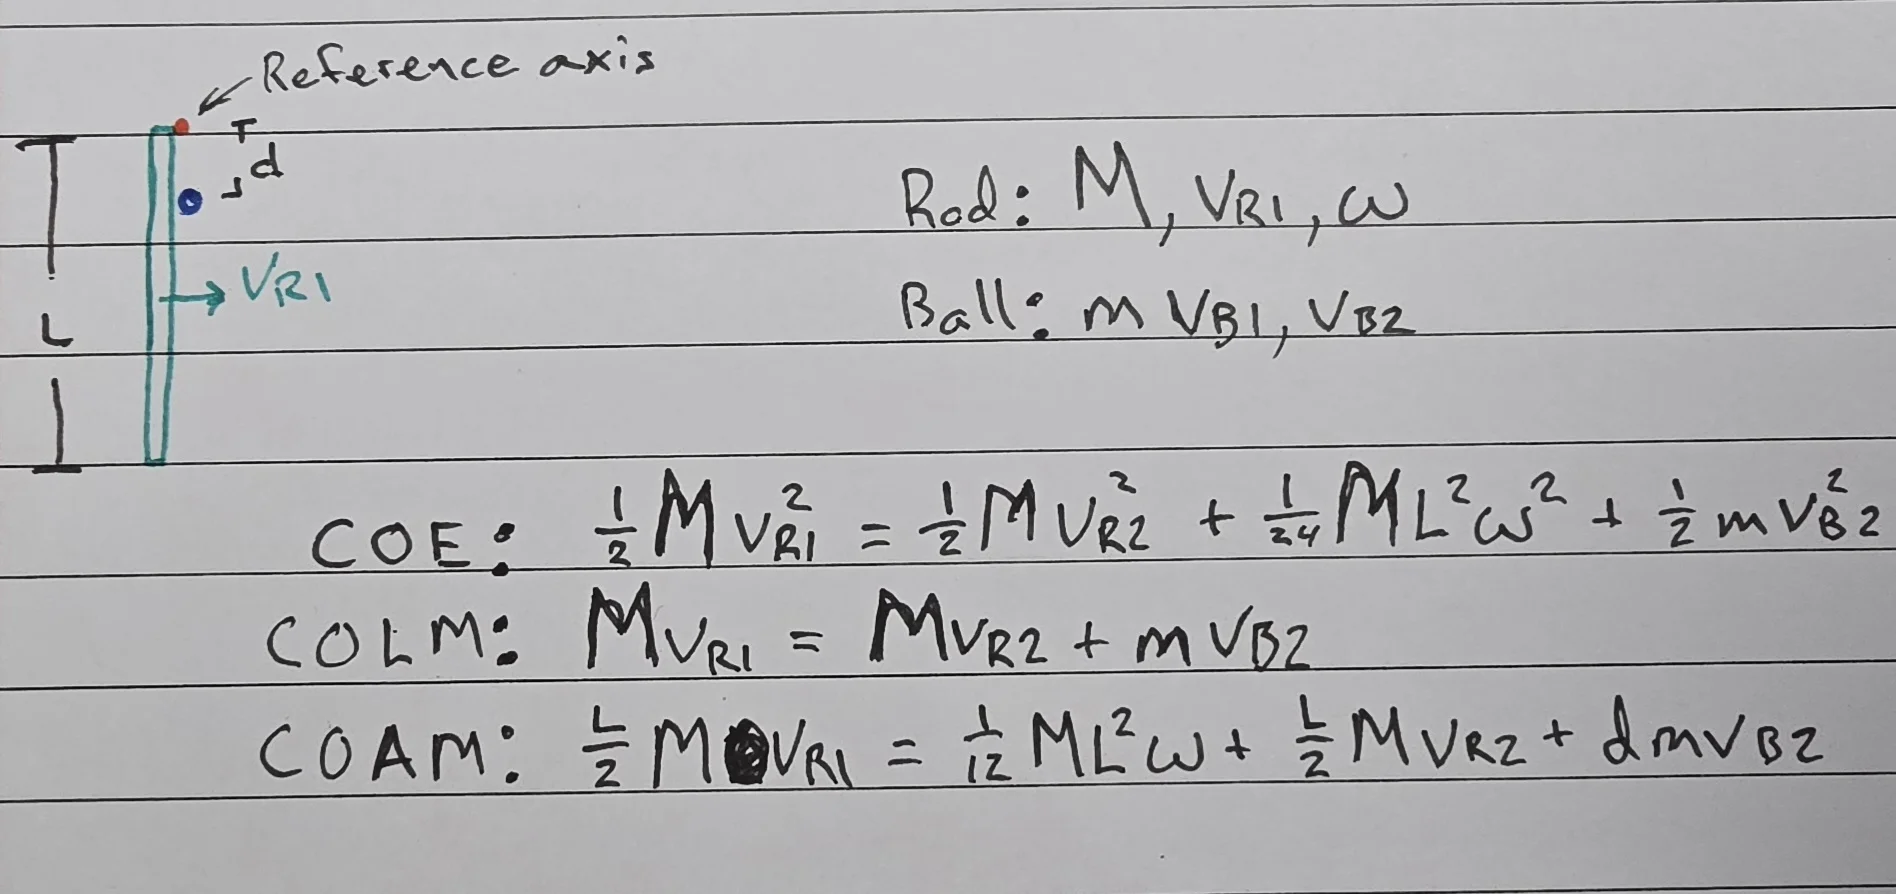 Reference axis
d
L
VR1
Rod: M, VR1, ω
Ball: m VB1, VB2
COE: 1/2 M VR1² = 1/2 M VR2² + 1/24 M L² ω² + 1/2 m VB2²
COLM: M VR1 = M VR2 + m VB2
COAM: L/2 M VR1 = 1/12 M L² ω + L/2 M VR2 + d m VB2